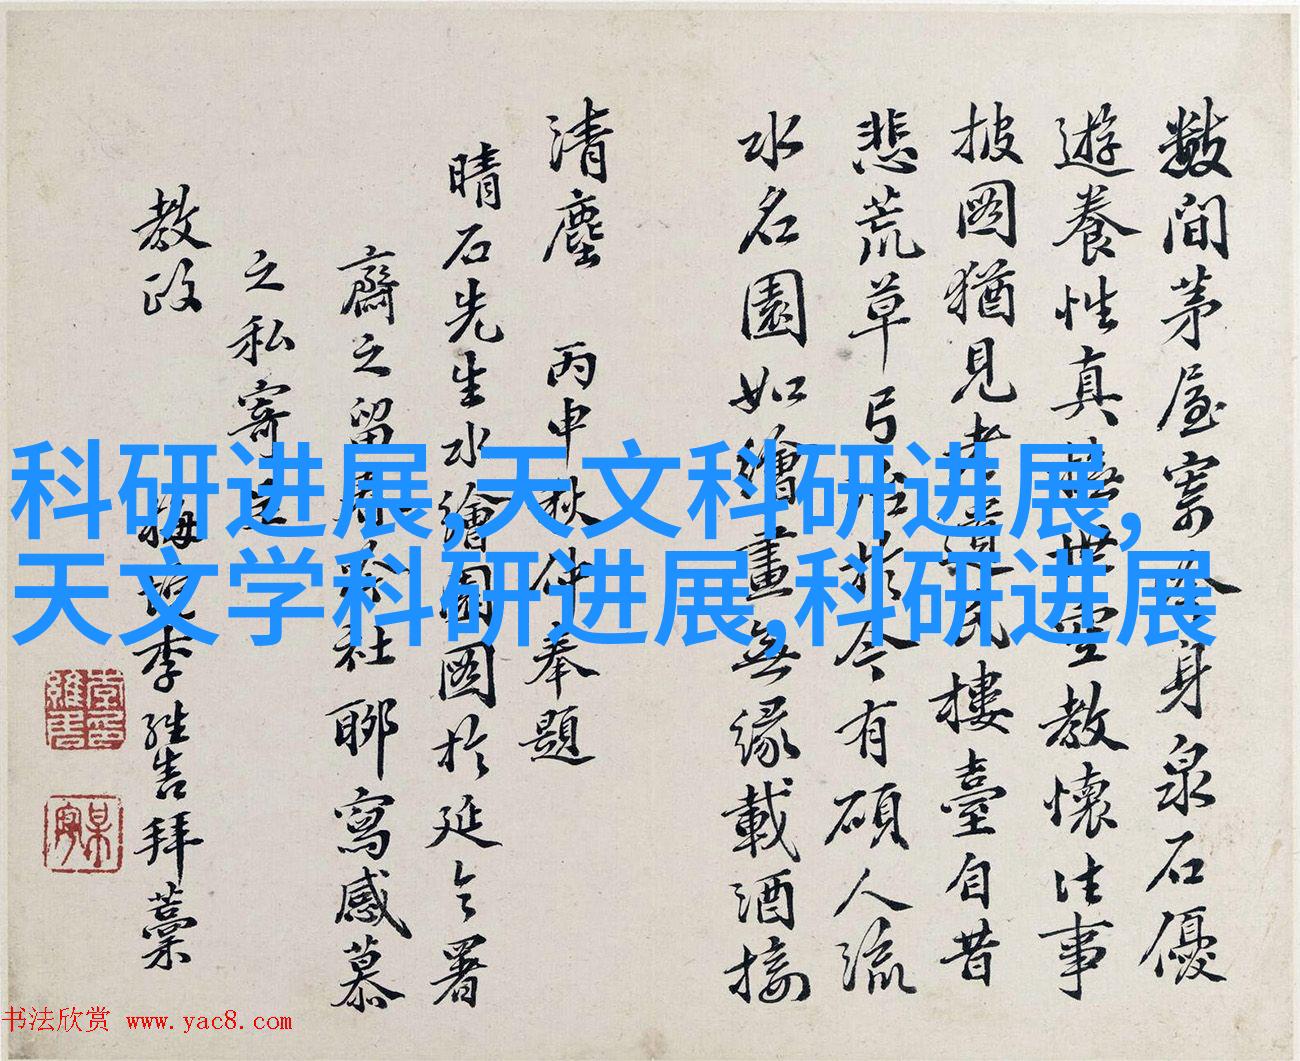 數間茅屋寄吟身泉石優
遊養性真無世空教懷往事
披圖猶見老遺民樓臺自昔
悲荒草弓於今有碩人流
水名園如繪畫無緣載酒接
清塵 丙申秋仲奉題
晴石先生水繪園圖於延令署
齋之留社聊寫感慕
之私寄
教政 梅李維善拜藁
科研进展,天文科研进展,
天文学科研进展,科研进展
书法欣赏 www.yac8.com